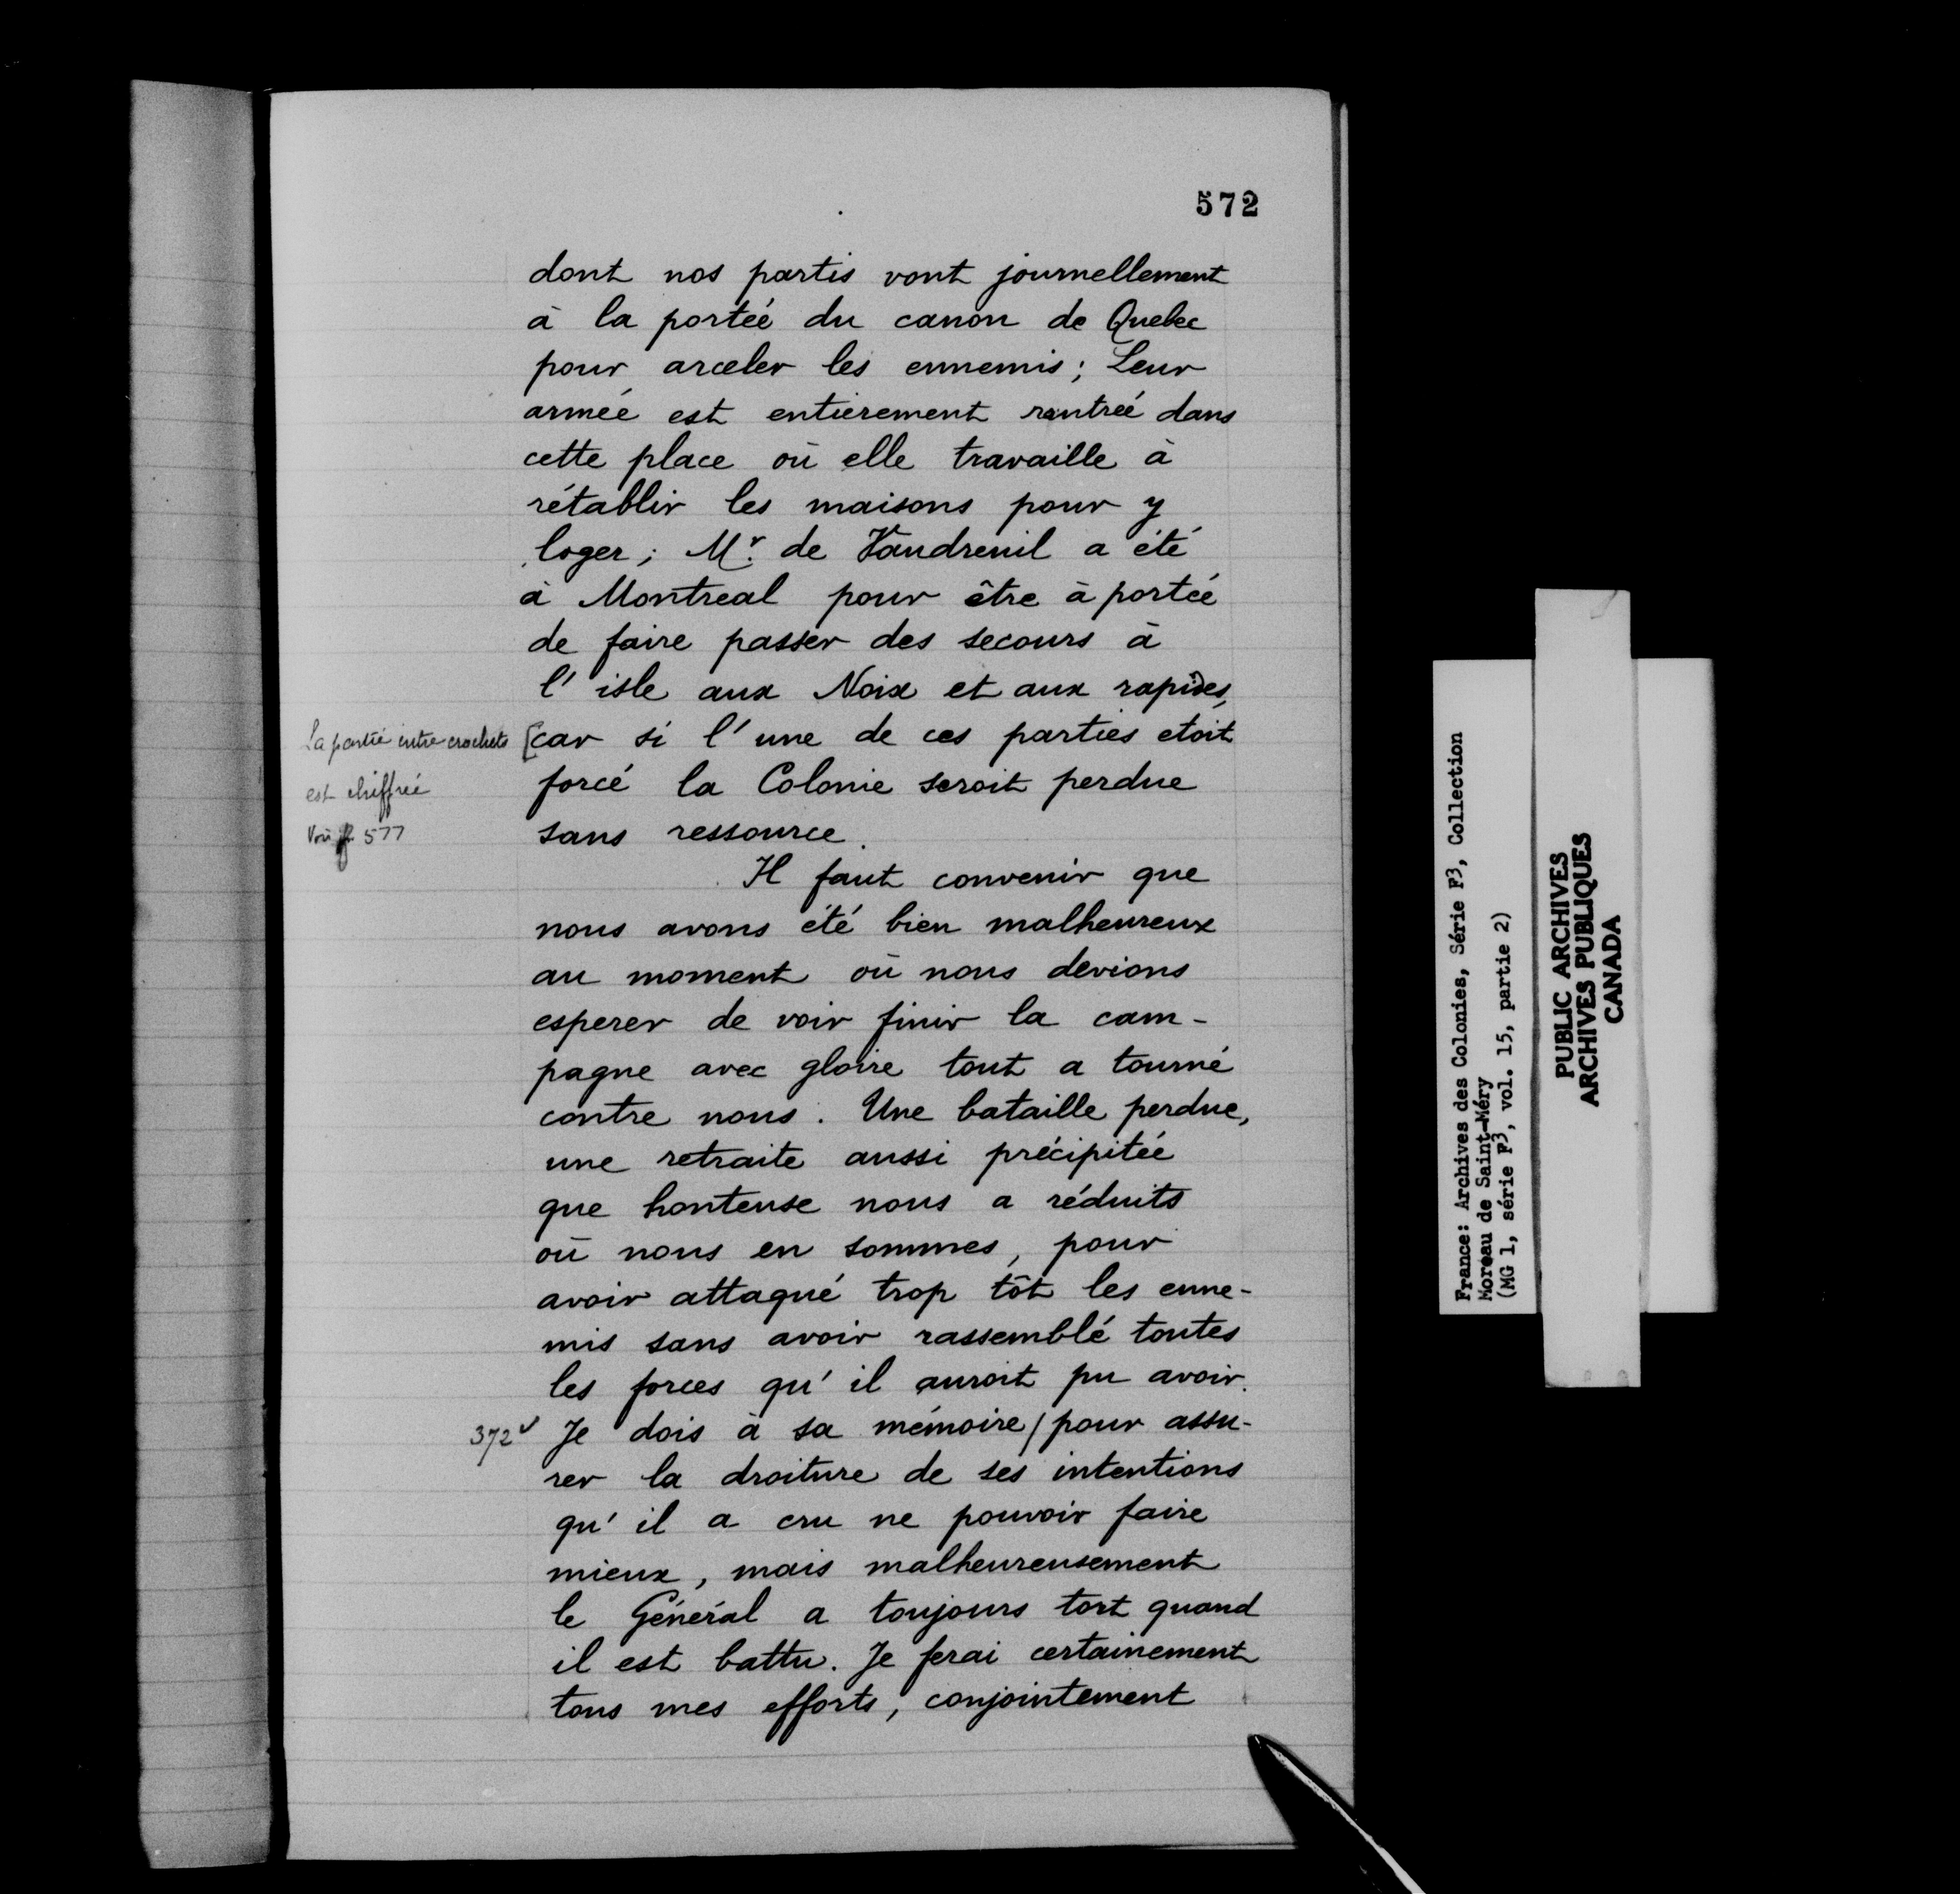 572
dont nos partis vont journellement
à la portéé du canon de Quebec
pour arceler les ennemis; Leur
arméé est entierement rentréé dans
cette place où elle travaille à
rétablir les maisons pour y
loger; Mr. de Vaudreuil a été
à Montreal pour être à portéé
de faire passer des secours à
l'isle aux Noix et aux rapides,
La partie entre crochets
est chiffrée
Voir p. 577
[car si l'une de ces parties etoit
forcé la Colonie seroit perdue
sans ressource.
Il faut convenir que
nous avons été bien malheureux
au moment où nous devions
esperer de voir finir la cam-
pagne avec gloire tout a tourné
contre nous. Une bataille perdue,
une retraite aussi précipitéé
que honteuse nous a réduits
où nous en sommes, pour
avoir attaqué trop tôt les enne-
mis sans avoir rassemblé toutes
les forces qu'il auroit pu avoir.
372v Je dois à sa mémoire / pour assu-
rer la droiture de ses intentions
qu'il a cru ne pouvoir faire
mieux, mais malheureusement
le Général a toujours tort quand
il est battu. Je ferai certainement
tous mes efforts, conjointement
France: Archives des Colonies, Série F3, Collection
Moreau de Saint-Méry
(MG 1, série F3, vol. 15, partie 2)
PUBLIC ARCHIVES
ARCHIVES PUBLIQUES
CANADA